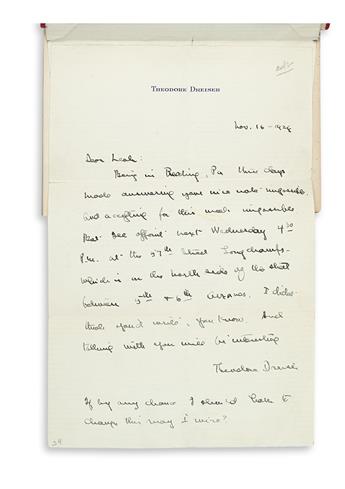 THEODORE DREISER
Nov. 16 - 1929
Dear Leah:
Being in Reading, Pa three days
made answering your nice note impossible
and accepting for this week impossible
But see appoint next Wednesday 4 30
P.m. at the 57th Street Longchamps -
which is in the north side of the street
between 5th & 6th Avenues. I didn't
think you'd write, you know. And
talking with you will be interesting
Theodore Dreiser
If by any chance I should have to
change this may I wire?